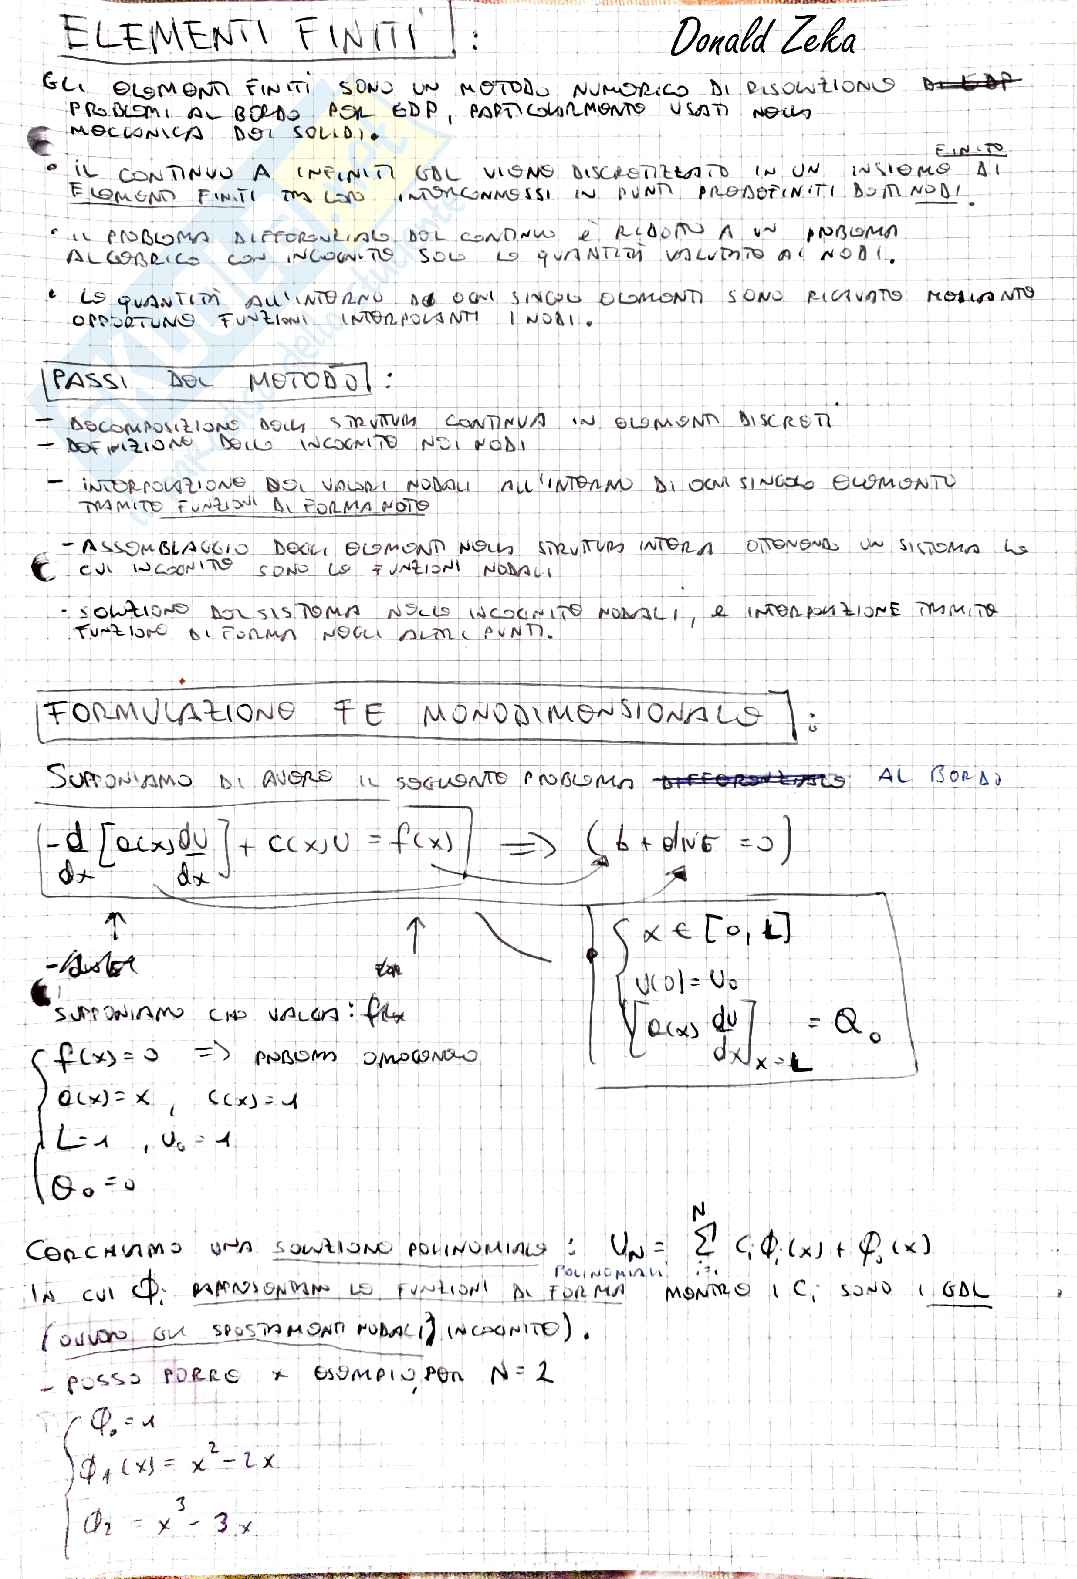 ELEMENTI FINITI :
Donald Zeka
GLI ELEMENTI FINITI SONO UN METODO NUMERICO DI RISOLUZIONE DI EDP
PROBLEMI AL BORDO PER EDP, PARTICOLARMENTE USATI NELLA
MECCANICA DEI SOLIDI.
FINITO
• IL CONTINUO A INFINITI GDL VIENE DISCRETIZZATO IN UN INSIEME DI
ELEMENTI FINITI TRA LORO INTERCONNESSI IN PUNTI PREDEFINITI DETTI NODI.
• IL PROBLEMA DIFFERENZIALE DEL CONTINUO È RIDOTTO A UN PROBLEMA
ALGEBRICO CON INCOGNITE SOLO LE QUANTITÀ VALUTATE AI NODI.
• LE QUANTITÀ ALL'INTERNO DI OGNI SINGOLO ELEMENTI SONO RICAVATE MEDIANTE
OPPORTUNE FUNZIONI INTERPOLANTI I NODI.
PASSI DEL METODO :
- DECOMPOSIZIONE DELLA STRUTTURA CONTINUA IN ELEMENTI DISCRETI
- DEFINIZIONE DELLE INCOGNITE NEI NODI
- INTERPOLAZIONE DEI VALORI NODALI ALL'INTERNO DI OGNI SINGOLO ELEMENTO
TRAMITE FUNZIONI DI FORMA NOTE
- ASSEMBLAGGIO DEGLI ELEMENTI NELLA STRUTTURA INTERA OTTENENDO UN SISTEMA LE
CUI INCOGNITE SONO LE FUNZIONI NODALI
- SOLUZIONE DEL SISTEMA NELLE INCOGNITE NODALI, E INTERPOLAZIONE TRAMITE
FUNZIONE DI FORMA NEGLI ALTRI PUNTI.
FORMULAZIONE FE MONODIMENSIONALE :
SUPPONIAMO DI AVERE IL SEGUENTE PROBLEMA DIFFERENZIALE AL BORDO
-d/dx [a(x) du/dx] + c(x)u = f(x) => (b + div E = 0)
x ∈ [0, L]
u(0) = u₀
[a(x) du/dx]x=L = Q₀
SUPPONIAMO CHE VALGA:
f(x) = 0 => PROBLEMA OMOGENEO
a(x) = x, c(x) = 1
L = 1, u₀ = 1
Q₀ = 0
CERCHIAMO UNA SOLUZIONE POLINOMIALE : U_N = Σ_{i=1}^{N} c_i ϕ_i(x) + ϕ₀(x)
POLINOMIALI
IN CUI ϕ_i RAPPRESENTANO LE FUNZIONI DI FORMA MENTRE I C_i SONO I GDL
(OVVERO GLI SPOSTAMENTI NODALI INCOGNITE).
- POSSO PORRE x ESEMPIO, PER N = 2
ϕ₀ = 1
ϕ₁(x) = x² - 2x
ϕ₂ = x³ - 3x